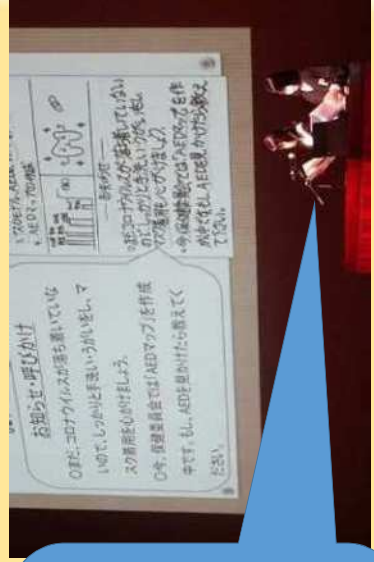 AEDマップ
お知らせ
まだコロナウイルスが落ち着いていない
のでしっかりと手洗い・うがいをし、
マスク着用も心がけましょう。
今、保健委員会では「AEDマップ」を作成
中です。もしAEDを見かけたら教えて
ください。
お知らせ・呼びかけ
○まだ、コロナウイルスが落ち着いていな
いので、しっかりと手洗い・うがいをし、マ
スク着用を心がけましょう。
○今、保健委員会では「AEDマップ」を作成
中です。もし、AEDを見かけたら教えてく
ださい。